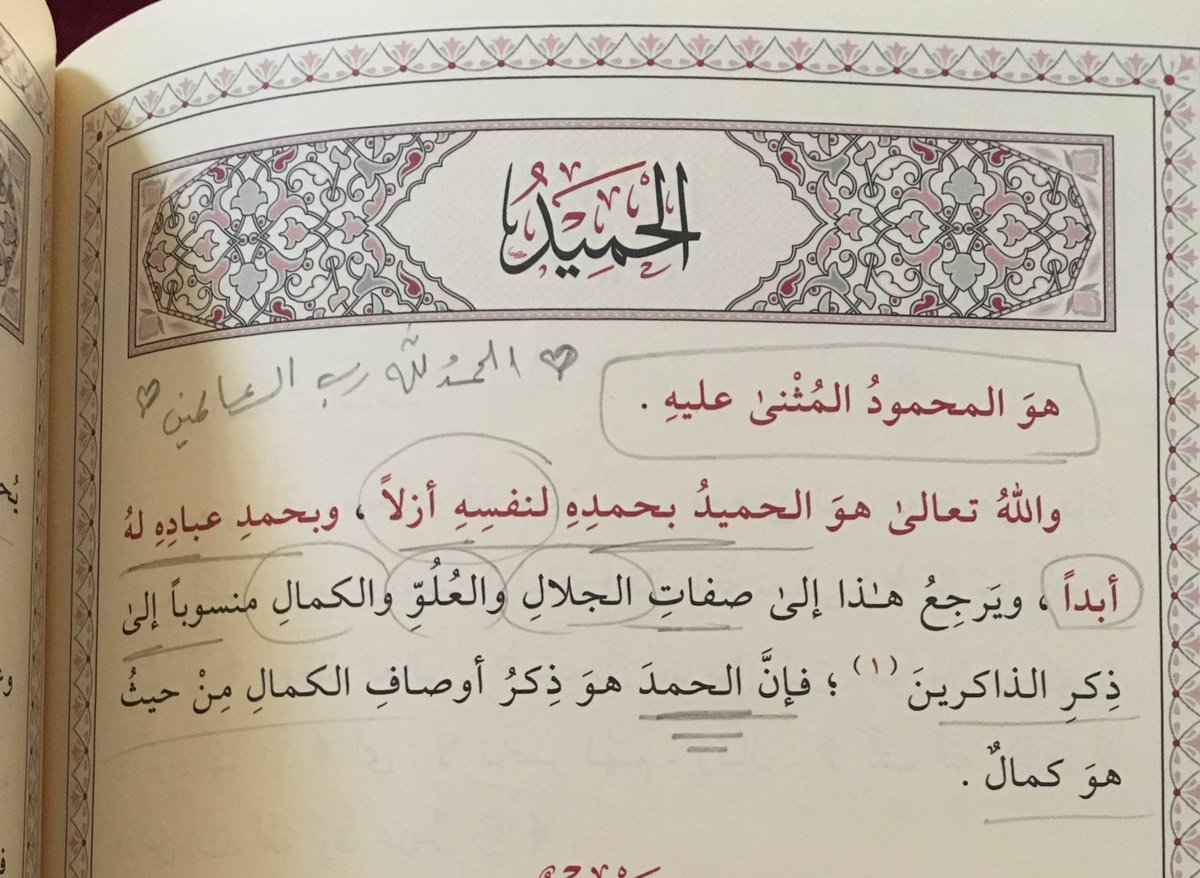 الحَمِيدُ
هوَ المحمودُ المُثْنىٰ عليهِ .
♡ الحمدُ لله رب العالمين ♡
واللهُ تعالىٰ هوَ الحميدُ بحمدِهِ لنفسِهِ أزلاً ، وبحمدِ عبادِهِ لهُ
أبداً ، ويَرجِعُ هـٰذا إلىٰ صفاتِ الجلالِ والعُلُوِّ والكمالِ منسوباً إلىٰ
ذِكرِ الذاكرينَ (١) ؛ فإنَّ الحمدَ هوَ ذِكرُ أوصافِ الكمالِ مِنْ حيثُ
هوَ كمالٌ .